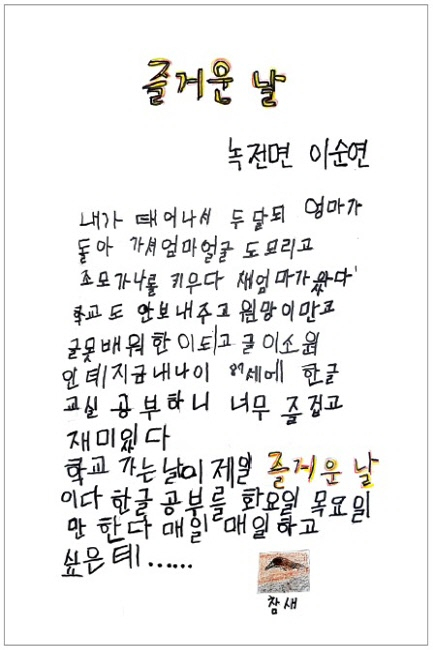 즐거운 날
녹전면 이순연
내가 때어나서 두달되 엄마가
돌아 가셔엄마얼굴 도모리고
조모가나를 키우다 새엄마가왔다
학교도 안보내주고 원망이만고
글못배워한이되고 글이소원
인데지금내나이 87세에 한글
교실 공부하니 너무 줄겁고
재미있다
학교 가는날이 제일 즐거운 날
이다 한글공부를 화요일 목요일
만 한다 매일 매일하고
싶은데......
참새